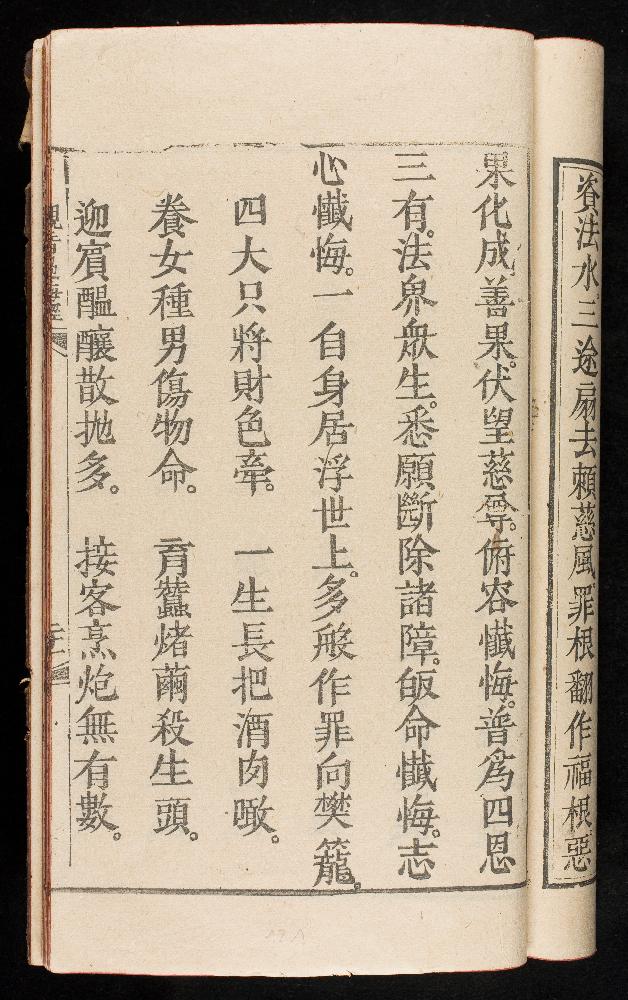 資法水三途扇去頼慈風罪根翻作福根惡
果化成善果。伏望慈尊。俯容懺悔。普爲四恩
三有。法界衆生。悉願斷除諸障。皈命懺悔。志
心懺悔。一自身居浮世上。多般作罪向樊籠。
四大只將財色牽。 一生長把酒肉啖。
養女種男傷物命。 育蠶烤繭殺生頭。
迎賓醖釀散抛多。 接客烹炮無有數。